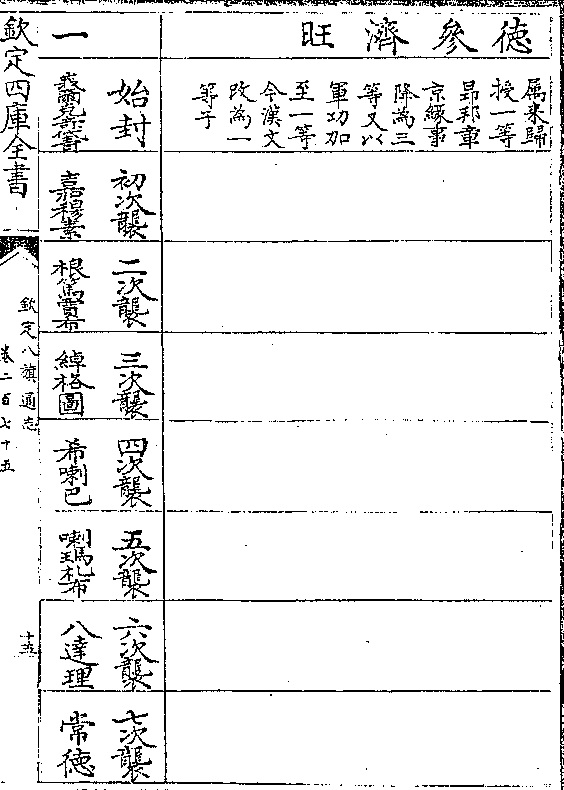 徳參濟旺
屬來歸
授一等
昻邦章
京縁事
降為三
等又以
軍功加
至一等
今漢文
改為一
等子
一
始封
初次襲
嘉穆素
二次襲
三次襲
綽格圖
四次襲
希喇巴
五次襲
喇瑪札布
六次襲
八達理
七次襲
常徳
欽定四庫全書
欽定八旗通志
卷二百七十五
十五